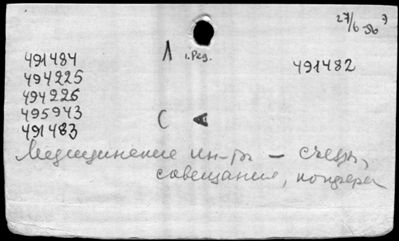 27/6-56 э
491484 Л 1.Ред. 491482
494225
494226
495943
491483 С А
Медицинские ин-ты – съезды,
совещания, конфер